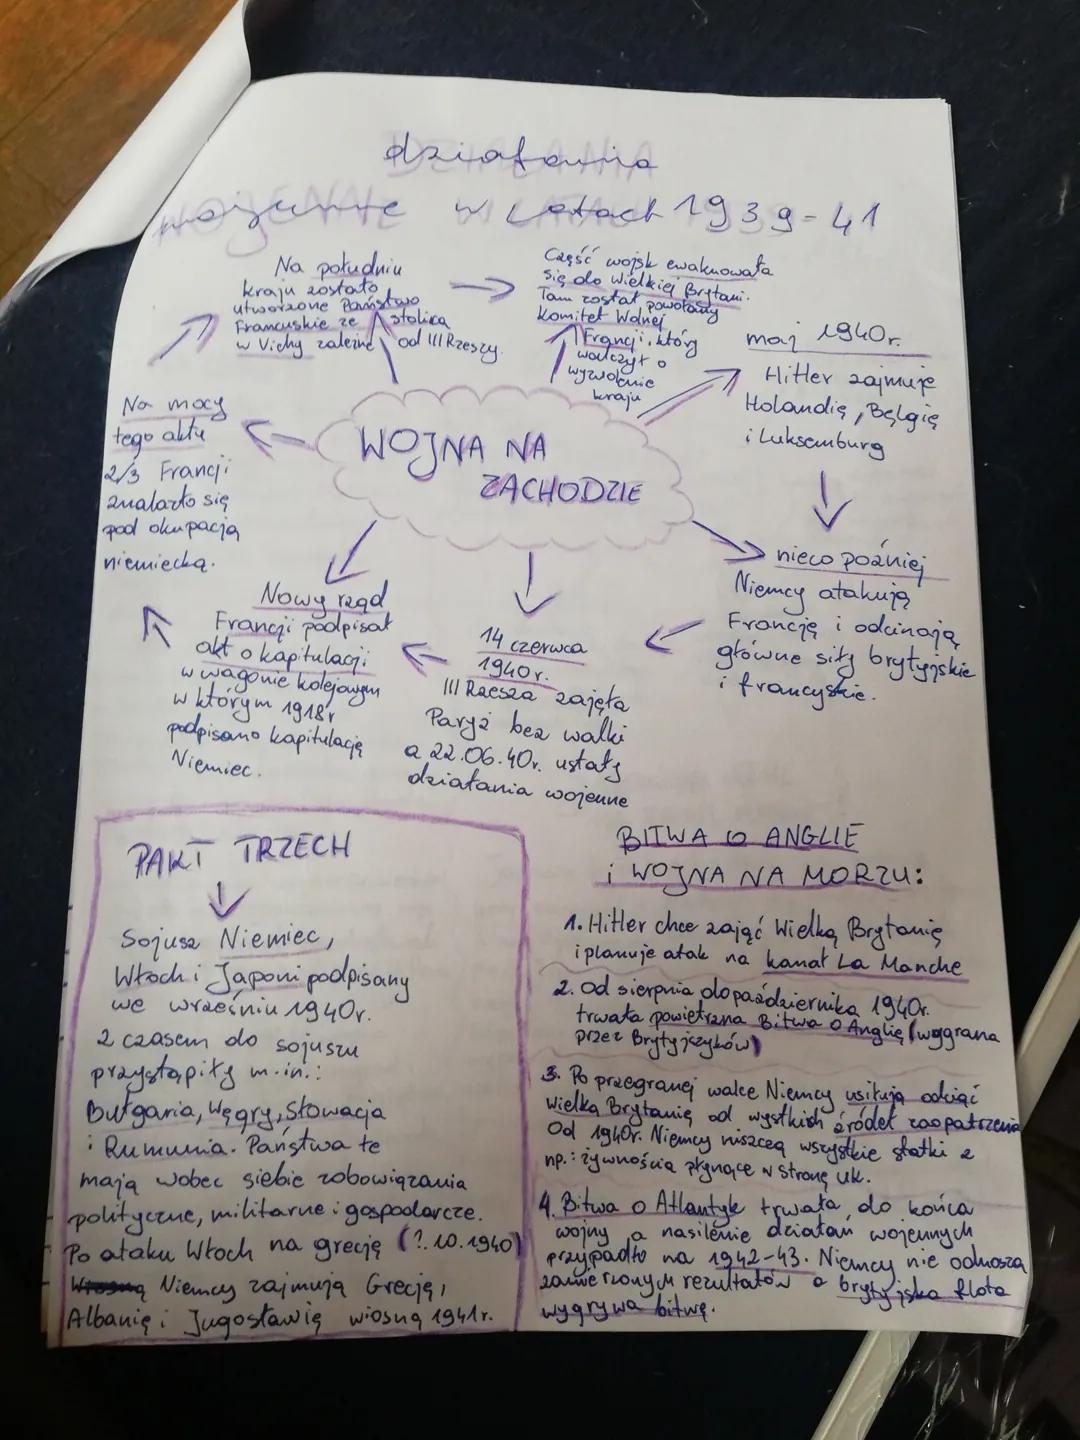 działania
wojenne w latach 1939-41
Na południu
kraju zostało
utworzone Państwo
Francuskie ze stolicą
w Vichy zależne od III Rzeszy.
Część wojsk ewakuowała
się do Wielkiej Brytani.
Tam został powołany
Komitet Wolnej
Francji, który
walczył o
wyzwolenie
kraju
maj 1940r.
Hitler zajmuje
Holandię, Belgię
i Luksemburg
Na mocy
tego aktu
2/3 Francji
znalazło się
pod okupacją
niemiecką.
WOJNA NA
ZACHODZIE
nieco później
Niemcy atakują
Francję i odcinają
główne siły brytyjskie
i francuskie.
Nowy rząd
Francji podpisał
akt o kapitulacji
w wagonie kolejowym
w którym 1918r
podpisano kapitulację
Niemiec.
14 czerwca
1940r.
III Rzesza zajęła
Paryż bez walki
a 22.06.40r. ustały
działania wojenne
PAKT TRZECH
Sojusz Niemiec,
Włoch i Japoni podpisany
we wrześniu 1940r.
Z czasem do sojuszu
przystąpiły m.in.:
Bułgaria, Węgry, Słowacja
i Rumunia. Państwa te
mają wobec siebie zobowiązania
polityczne, militarne i gospodarcze.
Po ataku Włoch na grecję (?.10.1940)
Wiosną Niemcy zajmują Grecję,
Albanię i Jugosławię wiosną 1941r.
BITWA O ANGLIE
i WOJNA NA MORZU:
1. Hitler chce zająć Wielką Brytanię
i planuje atak na kanał La Manche
2. Od sierpnia do października 1940r.
trwała powietrzna Bitwa O Anglię (wygrana
przez Brytyjczyków)
3. Po przegranej walce Niemcy usiłują odciąć
Wielką Brytanię od wszystkich źródeł zaopatrzenia
Od 1940r. Niemcy niszczą wszystkie statki z
np.: żywnością płynące w stronę UK.
4. Bitwa o Atlantyk trwała do końca
wojny a nasilenie działań wojennych
przypadło na 1942-43. Niemcy nie odnoszą
zamierzonych rezultatów a brytyjska flota
wygrywa bitwę.